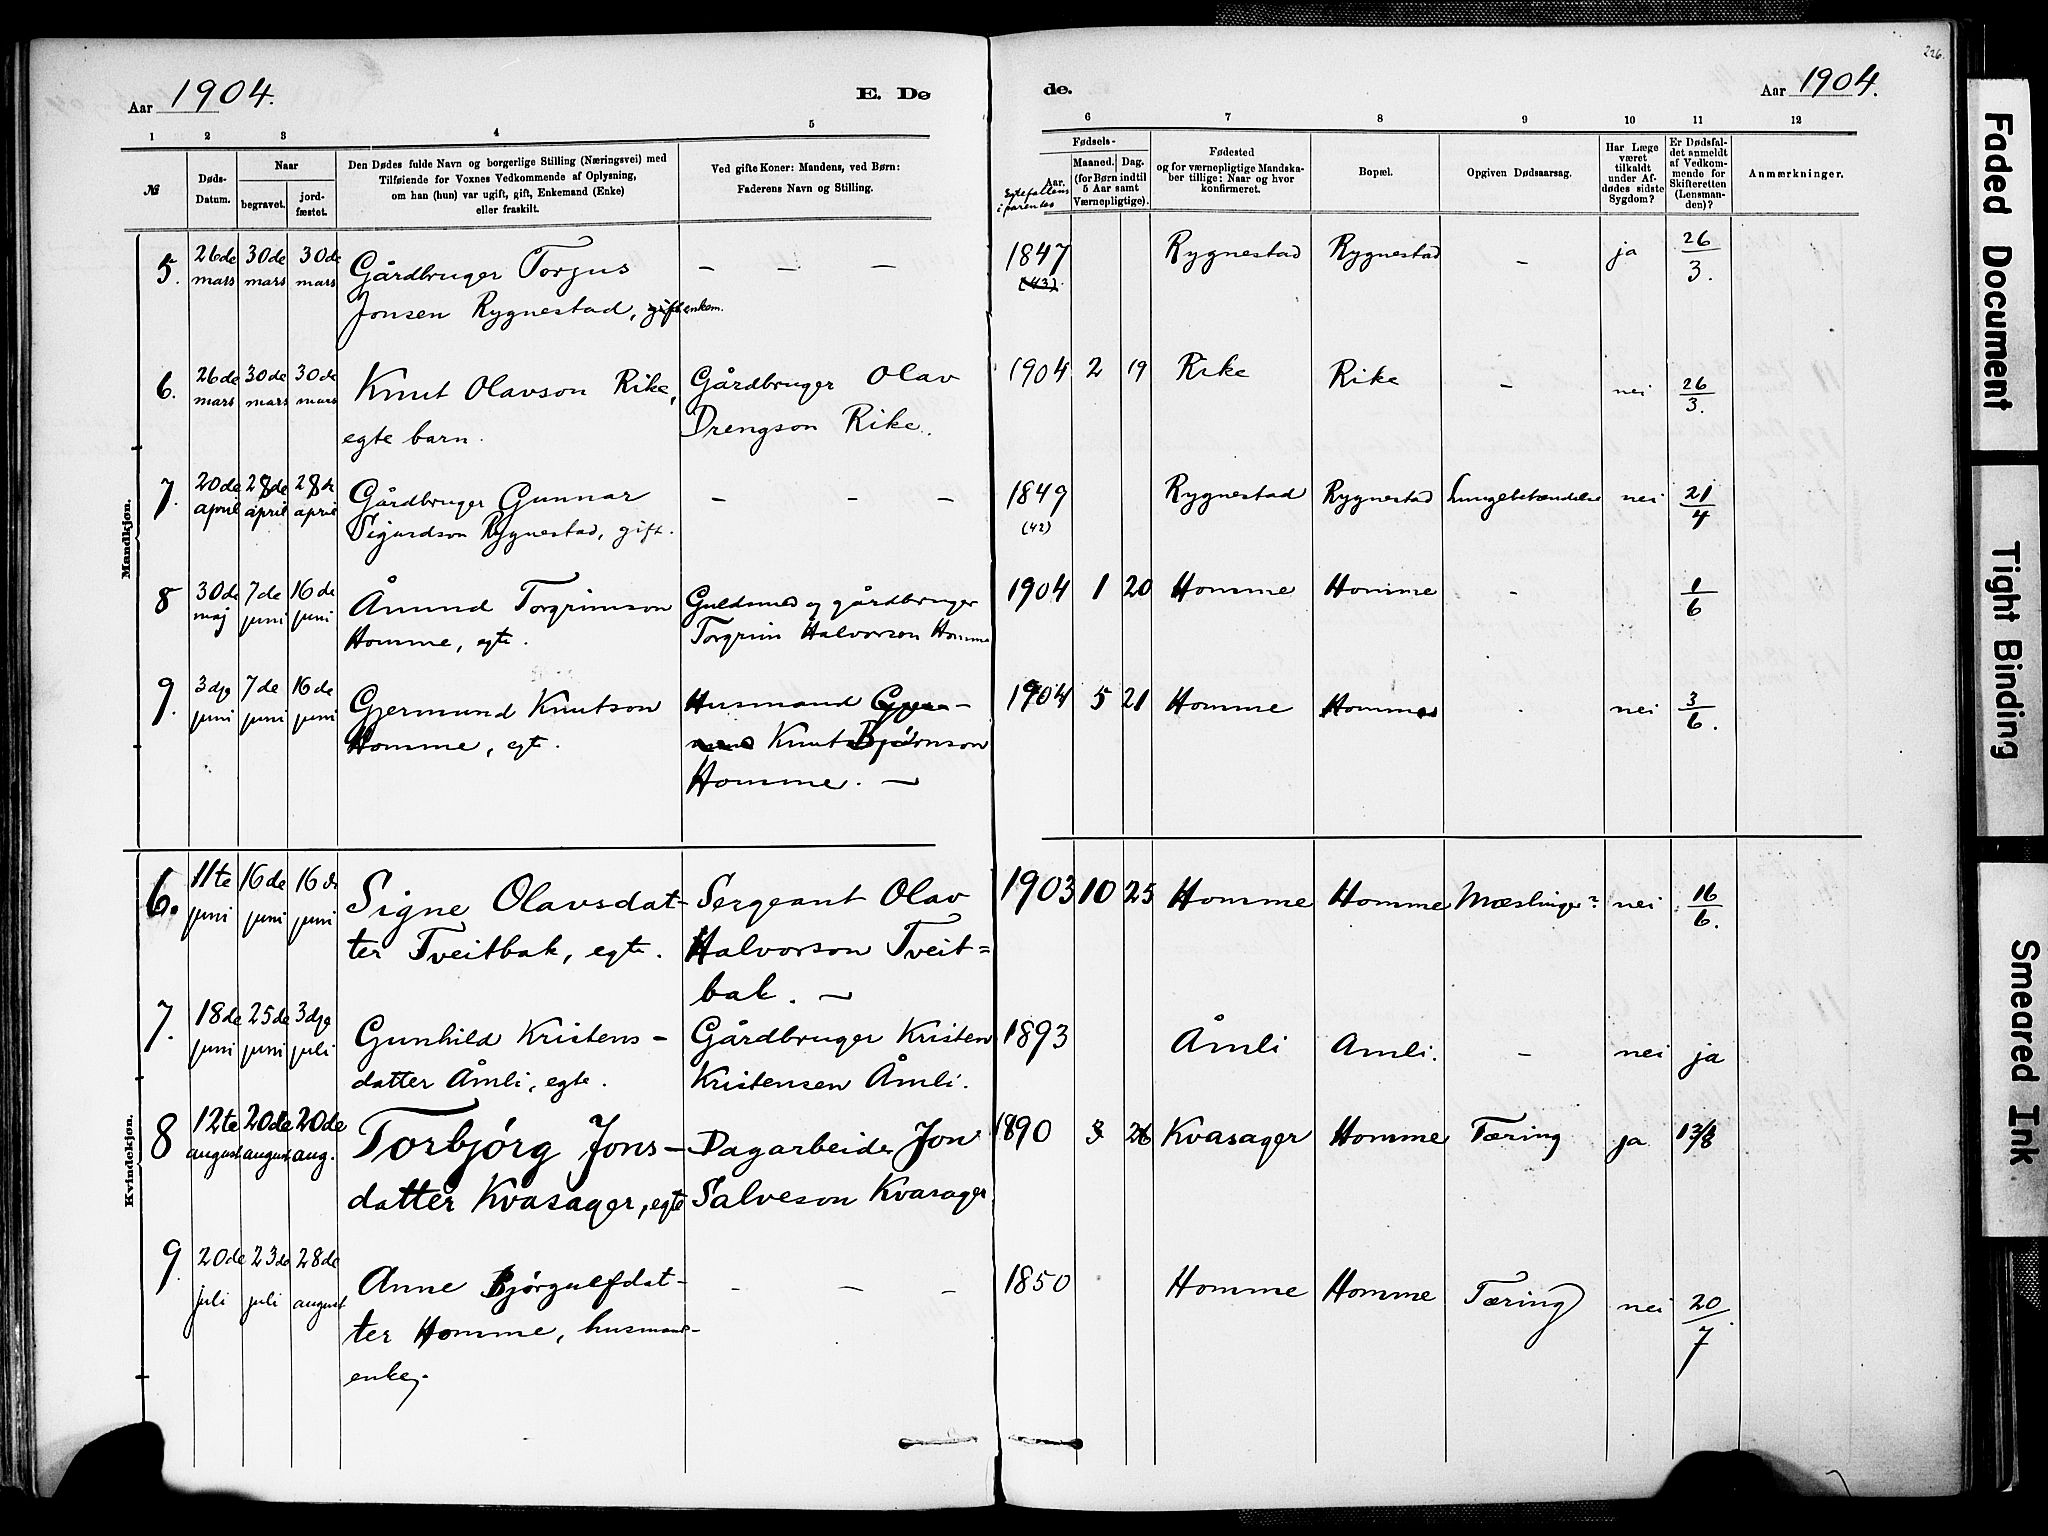 226.
Aar 1904.
E. Dø
de.
Aar 1904.
1 2 3 4 5 6 7 8 9 10 11 12
№
Døds-
Datum.
Naar
begravet.
jord-
fæstet.
Den Dødes fulde Navn og borgerlige Stilling (Næringsvei) med
Tilføiende for Voxnes Vedkommende af Oplysning,
om han (hun) var ugift, gift, Enkemand (Enke)
eller fraskilt.
Ved gifte Koner: Mandens, ved Børn:
Faderens Navn og Stilling.
Fødsels-
Aar.
Egtefællens
i parentes
Maaned. Dag.
(for Børn indtil
5 Aar samt
Værnepligtige).
Fødested
og for værnepligtige Mandska-
ber tillige: Naar og hvor
konfirmeret.
Bopæl.
Opgiven Dødsaarsag.
Har Læge
været
tilkaldt
under Af-
dødes sidste
Sygdom?
Er Dødsfal-
det anmeldt
af Vedkom-
mende for
Skifteretten
(Lensman-
den)?
Anmærkninger.
Mandkjøn.
5. 26de 30de 30de Gårdbruger Torgus – – – 1847 Rygnestad Rygnestad – ja 26/3.
mars mars mars Jonsen Rygnestad, gift enkem. (43).
6. 26de 30de 30de Knut Olavson Rike, Gårdbruger Olav 1904 2 19 Rike Rike – nei 26/3.
mars mars mars egte barn. Drengson Rike.
7. 20de 28de 28de Gårdbruger Gunnar – – – 1849 Rygnestad Rygnestad Lungebetændelse nei 21/4
april april april Sigurdson Rygnestad, gift. (42)
8 30de 7de 16de Åmund Torgrimson Guldsmed og gårdbruger 1904 1 20 Homme Homme – 1/6
maj juni juni Homme, egte. Torgrim Halvorson Homme
9. 3dje 7de 16de Gjermund Knutson Husmand 1904 5 21 Homme Homme . nei 3/6.
juni juni juni Homme, egte. Knut Bjørnson
Homme. –
Kvindekjøn.
6. 11te 16de 16de Signe Olavsdat- Sergeant Olav 1903 10 25 Homme Homme Mæslinger? nei 16/6.
juni juni juni ter Tveitbak, egte. Halvorson Tveit=
bak. –
7. 18de 25de 3dje Gunhild Kristens- Gårdbruger Kristen 1893 Åmli Amli. – nei ja
juni juni juli datter Åmli, egte. Kristensen Åmli.
8 12te 20de 20de Torbjørg Jons- Dagarbeider Jon 1890 3 26 Kvasager Homme Tæring ja 13/8
august august aug. datter Kvasager, egte Salveson Kvasager.
9. 20de 23de 28de Anne Bjørgulfdat- – – – 1850 Homme Homme Tæring nei 20/7.
juli juli august ter Homme, husmands-
enke.
Faded Document
Tight Binding
Smeared Ink